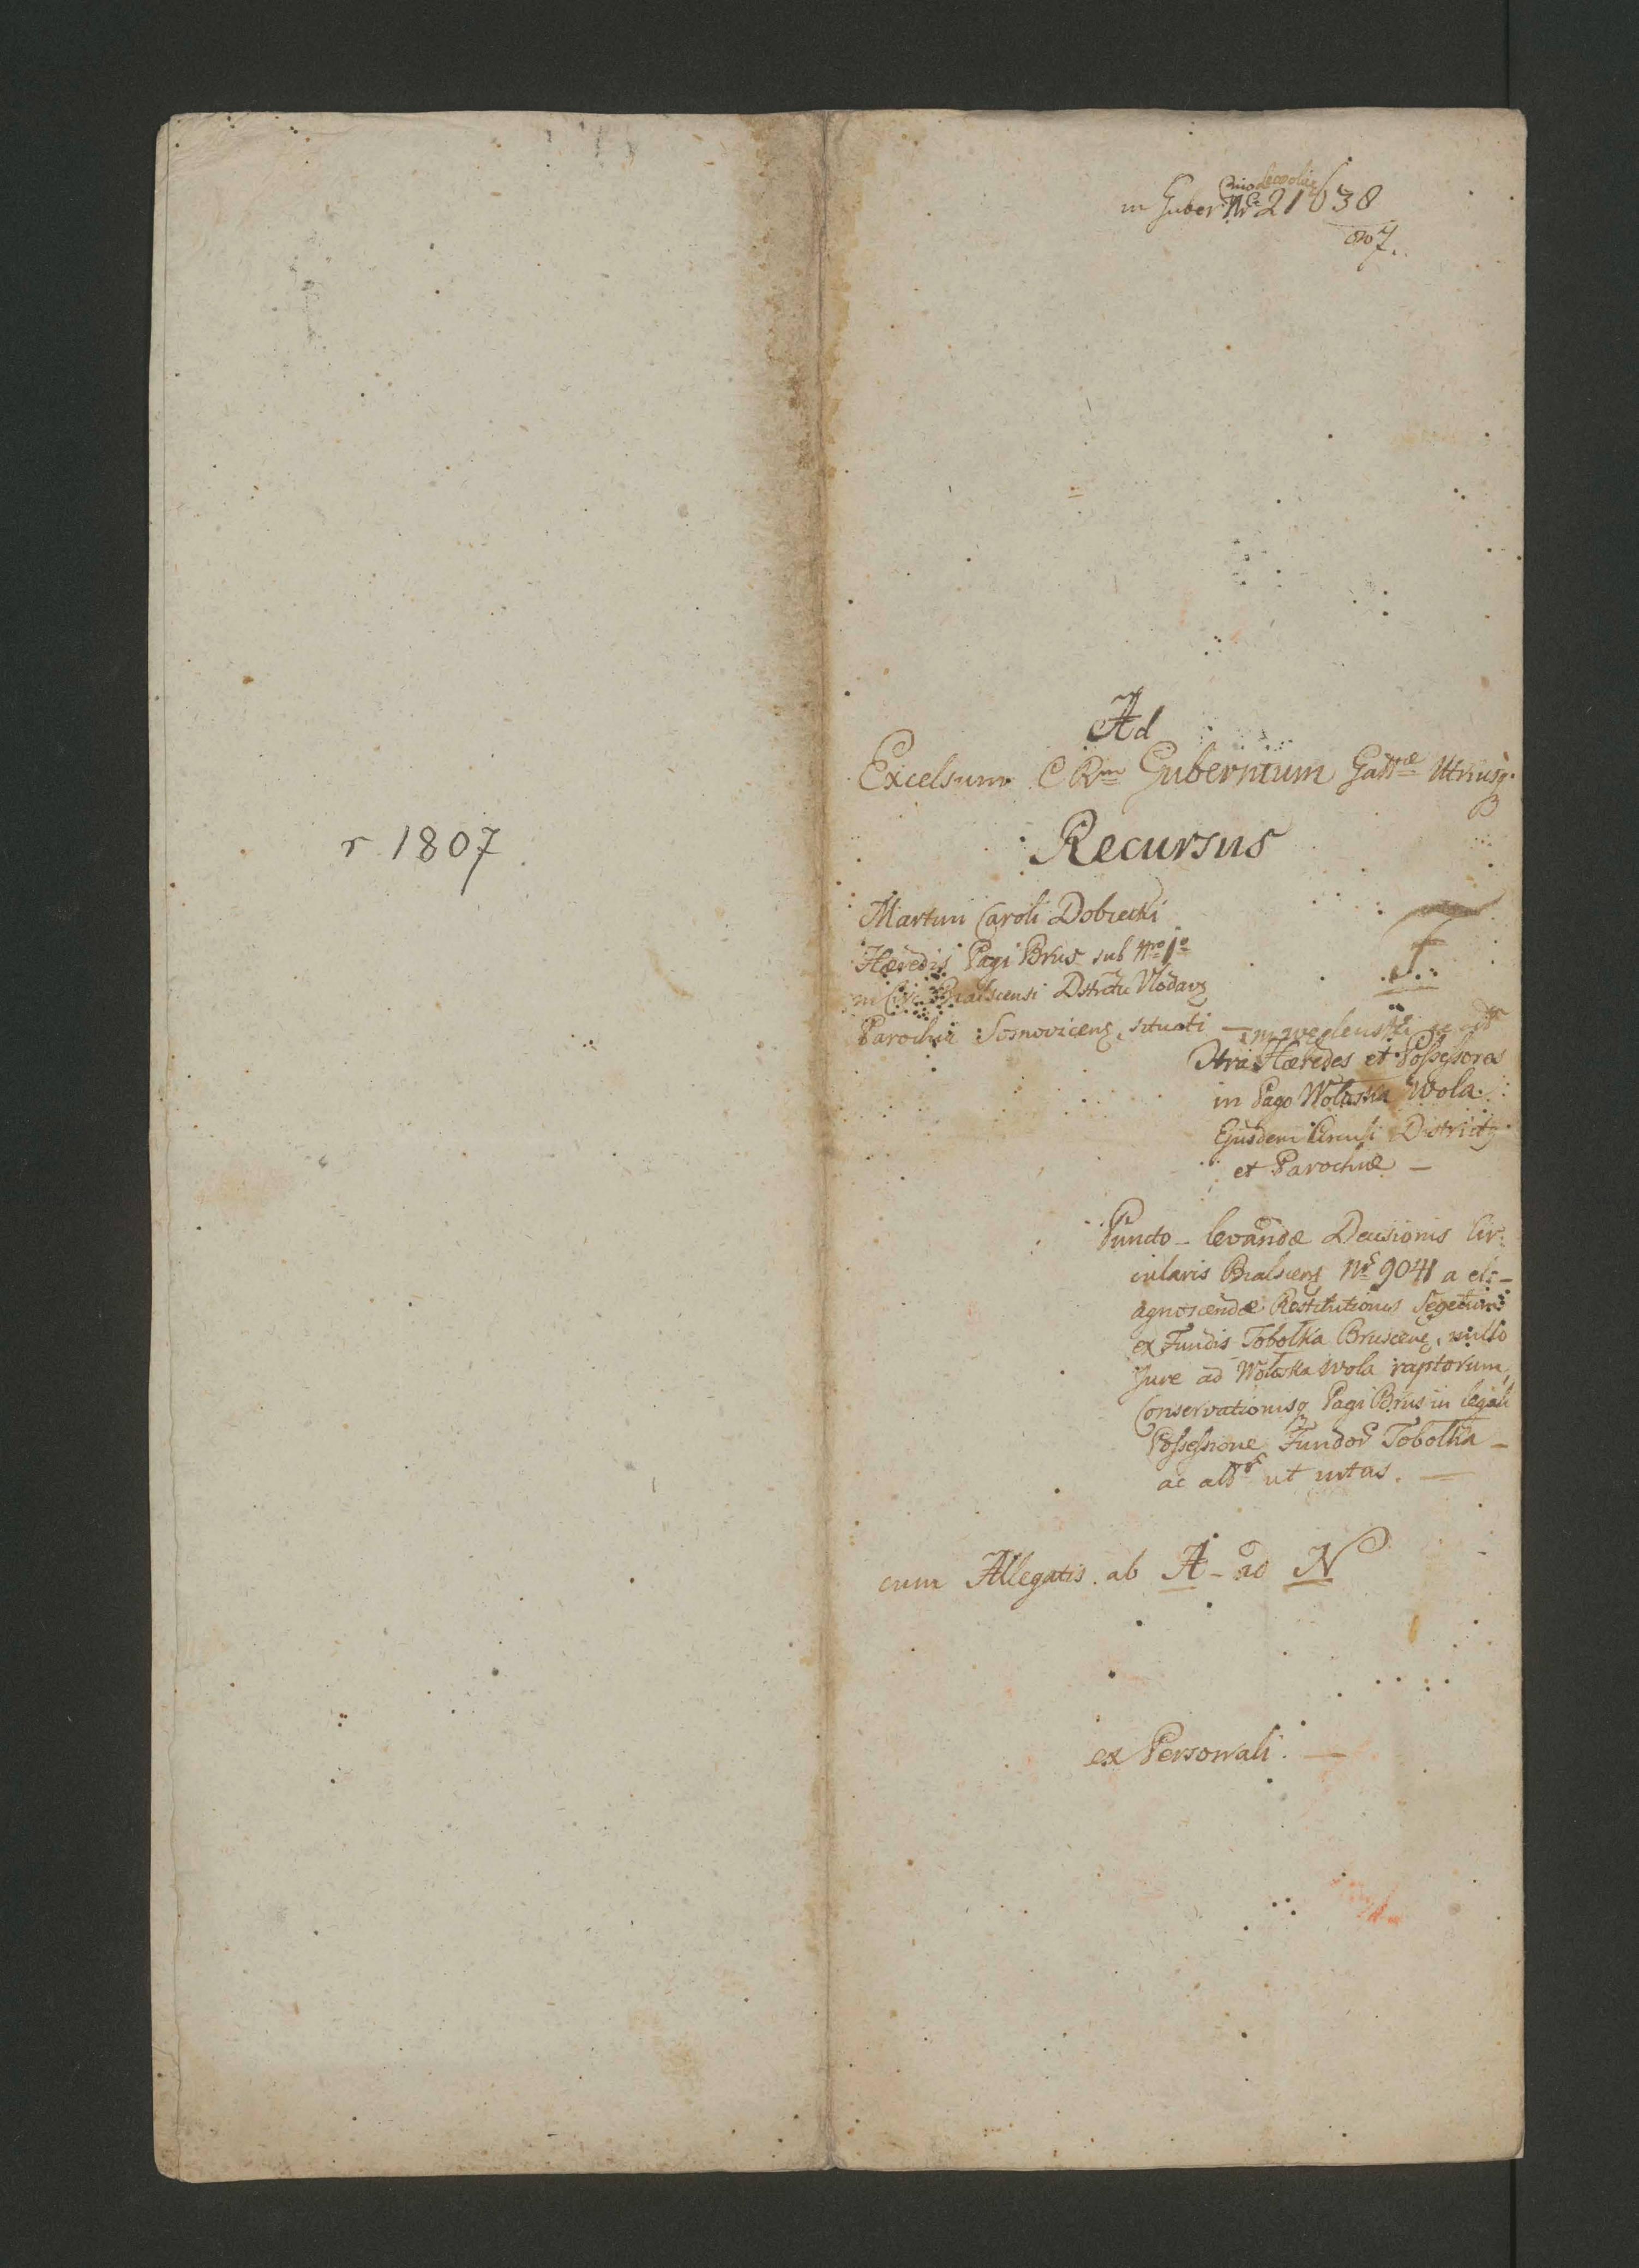 r 1807.
in Guber: Nr 21638
807.
Ad
Excelsum C Rm Gubernium Gattae Utriusq.
Recursus
Martini Caroli Dobrecki
Hæredis Pagi Brus sub Nro 1o
in Circ Bialscensi Dstrctu Vlodav
Parochia Sosnovicens situati —
Ctra Hæredes et Possessores
in Pago Wołoska Wola
Ejusdem Circuli District
et Parochiæ —
Puncto - levandæ Decisionis Cir:
cularis Bialscens Nr 9041 a et: -
agnoscendæ Restitutionis Segetum
ex Fundis Tobołka Bruscens, nullo
Jure ad Wołoska Wola raptorum,
Conservationisq Pagi Brus in legali
Possessione Fundor Tobołka -
ac ut intus. —
cum Allegatis. ab A - ad N
ex Personali. —